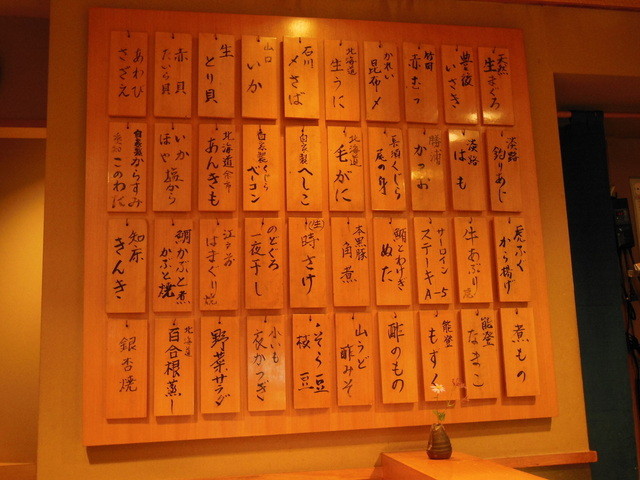 天然 生まぐろ
豊後 いさき
竹岡 赤むつ
かれい 昆布〆
北海道 生うに
石川 〆さば
山口 いか
生 とり貝
赤貝 たいら貝
あわび さざえ
淡路 釣りあじ
淡路 はも
勝浦 かつお
長須くじら 尾の身
北海道 毛がに
自家製 へしこ
自家製くじら ベーコン
北海道余市 あんきも
いか塩から ほや
自家製からすみ このわた
虎ふぐ から揚げ
牛あぶり焼
サーロイン ステーキ A-5
鮪とわけぎ ぬた
本黒豚 角煮
生 時さけ
のどぐろ 一夜干し
江戸前 はまぐり焼
鯛かぶと煮 かぶと焼
知床 きんき
煮もの
能登 なまこ
能登 もずく
酢のもの
山うど 酢みそ
そら豆 枝豆
小いも 衣かつぎ
野菜サラダ
北海道 百合根蒸し
銀杏焼